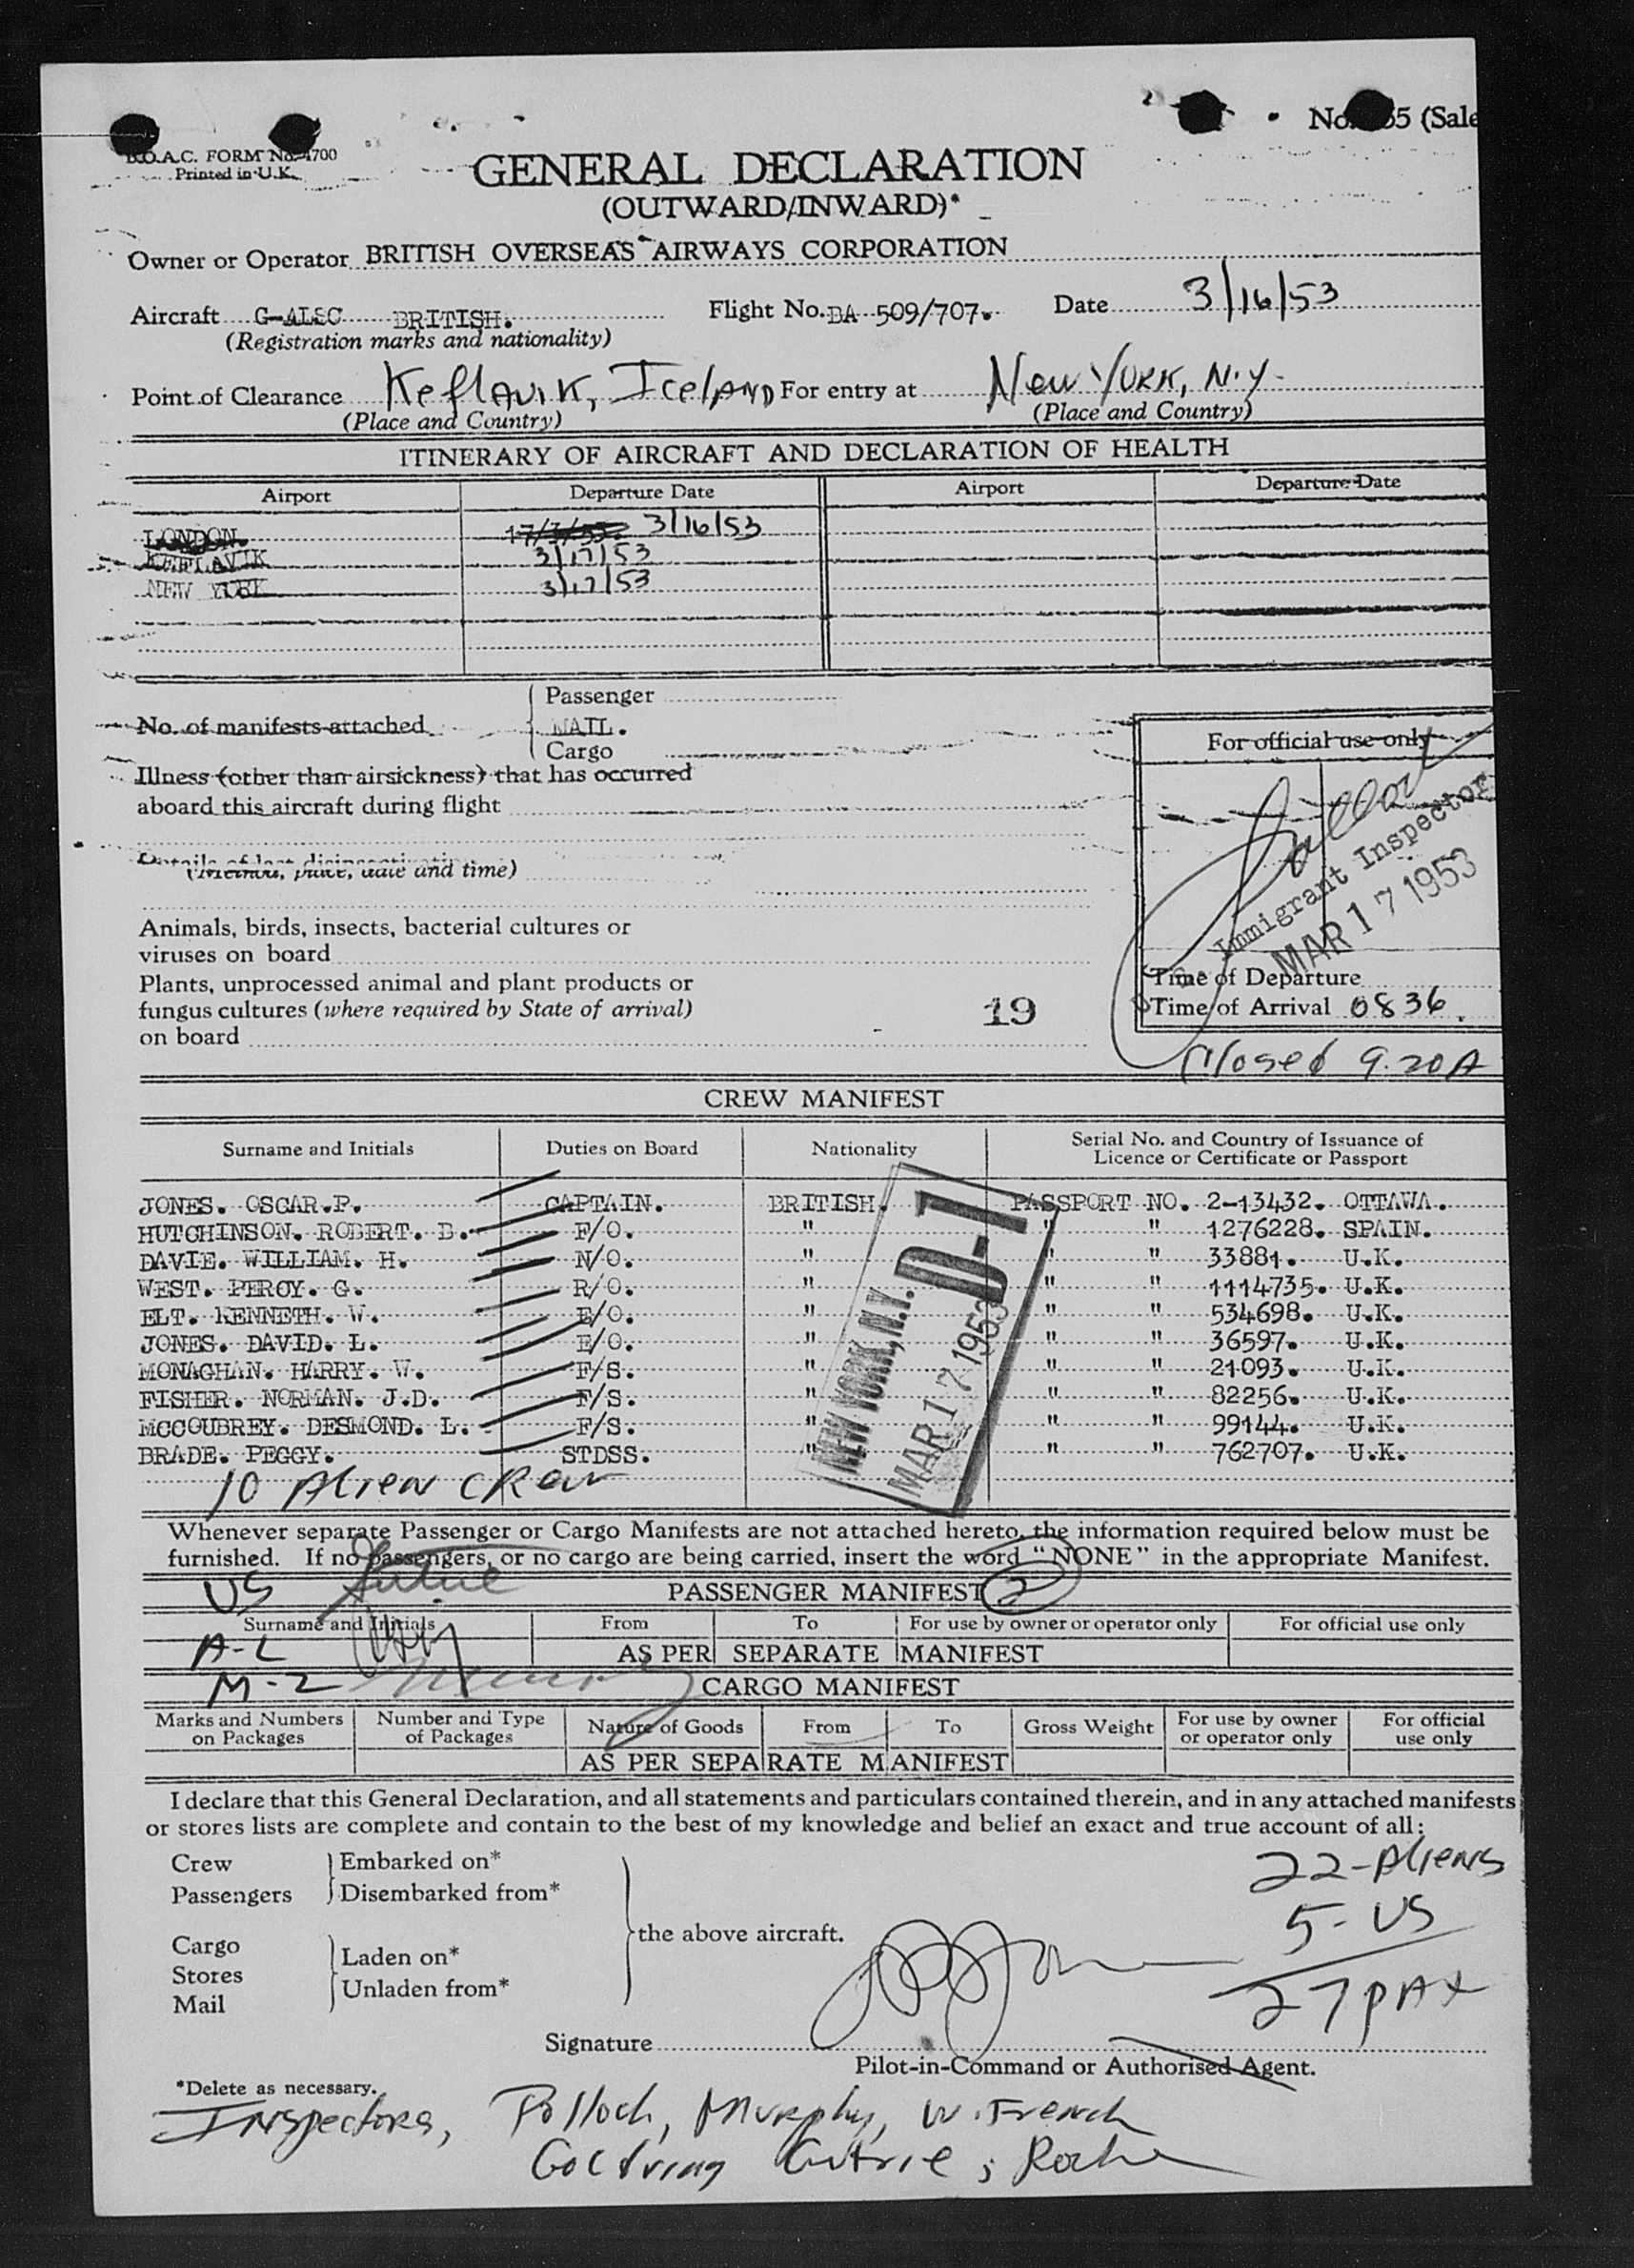 B.O.A.C. FORM No. 4700
Printed in U.K.
No. 5 (Sale
GENERAL DECLARATION
(OUTWARD/INWARD)*
Owner or Operator BRITISH OVERSEAS AIRWAYS CORPORATION
Aircraft G-ALSC BRITISH. Flight No. BA 509/707. Date 3/16/53
(Registration marks and nationality)
Point of Clearance Keflavik, Iceland For entry at New York, N.Y.
(Place and Country) (Place and Country)
ITINERARY OF AIRCRAFT AND DECLARATION OF HEALTH
Airport Departure Date Airport Departure Date
LONDON. 17/3/53. 3/16/53
KEFLAVIK 3/17/53
NEW YORK 3/17/53
Passenger
No. of manifests attached MAIL.
Cargo
For official use only
Illness (other than airsickness) that has occurred
aboard this aircraft during flight
Details of last disinsectisation
(Method, place, date and time)
Immigrant Inspector
MAR 17 1953
Animals, birds, insects, bacterial cultures or
viruses on board
Plants, unprocessed animal and plant products or
fungus cultures (where required by State of arrival)
on board
19
Time of Departure
Time of Arrival 0836.
Closed 9.20A
CREW MANIFEST
Surname and Initials Duties on Board Nationality Serial No. and Country of Issuance of
Licence or Certificate or Passport
JONES. OSCAR.P. CAPTAIN. BRITISH. PASSPORT NO. 2-13432. OTTAWA.
HUTCHINSON. ROBERT. B. F/O. " " " 1276228. SPAIN.
DAVIE. WILLIAM. H. N/O. " " " 33881. U.K.
WEST. PERCY. G. R/O. " " " 1114735. U.K.
ELT. KENNETH. W. E/O. " " " 534698. U.K.
JONES. DAVID. L. E/O. " " " 36597. U.K.
MONAGHAN. HARRY. W. F/S. " " " 21093. U.K.
FISHER. NORMAN. J.D. F/S. " " " 82256. U.K.
MCCOUBREY. DESMOND. L. F/S. " " " 99144. U.K.
BRADE. PEGGY. STDSS. " " " 762707. U.K.
10 Alien Crew
NEW YORK, N.Y. D-1
MAR 17 1953
Whenever separate Passenger or Cargo Manifests are not attached hereto, the information required below must be
furnished. If no passengers, or no cargo are being carried, insert the word "NONE" in the appropriate Manifest.
US
PASSENGER MANIFEST 2
Surname and Initials From To For use by owner or operator only For official use only
A-L
AS PER SEPARATE MANIFEST
M-Z
CARGO MANIFEST
Marks and Numbers on Packages Number and Type of Packages Nature of Goods From To Gross Weight For use by owner or operator only For official use only
AS PER SEPARATE MANIFEST
I declare that this General Declaration, and all statements and particulars contained therein, and in any attached manifests
or stores lists are complete and contain to the best of my knowledge and belief an exact and true account of all:
Crew Embarked on*
Passengers Disembarked from*
22-Aliens
5-US
27 PAX
the above aircraft.
Cargo
Stores Laden on*
Mail Unladen from*
Signature
Pilot-in-Command or Authorised Agent.
*Delete as necessary.
Inspectors, Pollock, Murphy, W. French
Goldring Gutrie, Roche